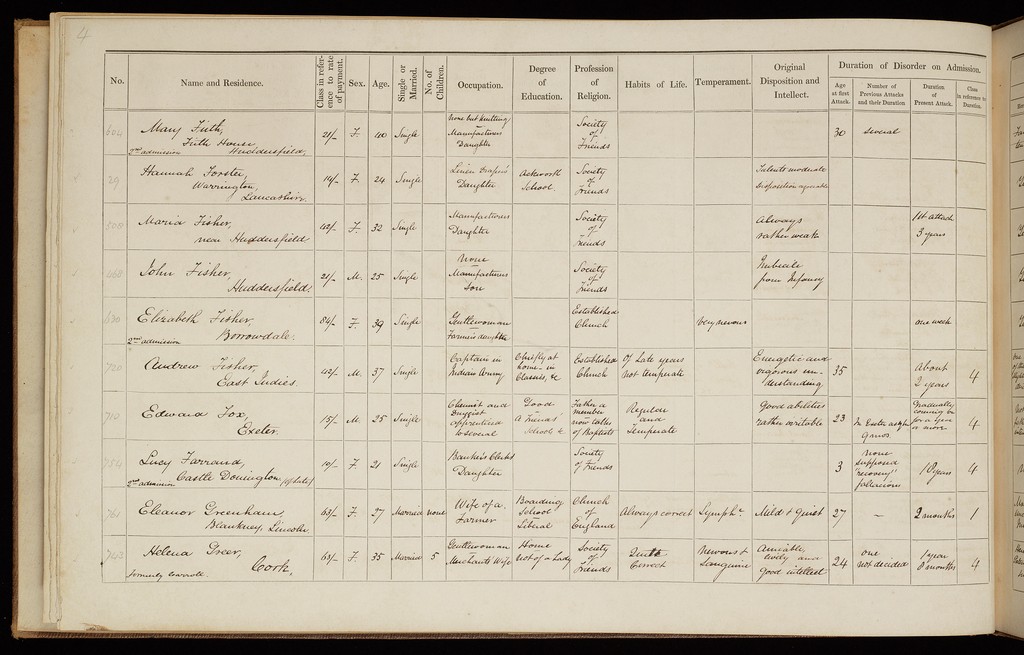 4
No.
Name and Residence.
Class in refer-
ence to rate
of payment.
Sex.
Age.
Single or
Married.
No. of
Children.
Occupation.
Degree
of
Education.
Profession
of
Religion.
Habits of Life.
Temperament.
Original
Disposition and
Intellect.
Duration of Disorder on Admission.
Age
at first
Attack.
Number of
Previous Attacks
and their Duration
Duration
of
Present Attack.
Class
in reference to
Duration.
Mary Firth,
Firth House
2nd admission Huddersfield,
21/- F. 40 Single
None but knitting
Manufacturers
Daughter
Society
of
Friends
30 Several
29
Hannah Forster,
Warrington,
Lancashire.
14/- F. 24 Single
Linen Draper's
Daughter
Ackworth
School.
Society
of
Friends
Talents moderate
Disposition agreeable
508
Maria Fisher,
near Huddersfield
42/- F. 32 Single
Manufacturers
Daughter
Society
of
Friends
Always
rather weak
1st attack
3 years
John Fisher,
Huddersfield.
21/- M. 25 Single
None
Manufacturers
Son
Society
of
Friends
Imbecile
from Infancy
Elizabeth Fisher,
Borrowdale.
2nd admission
84/- F. 39 Single
Gentlewoman
Farmers daughter
Established
Church
Very nervous
one week
720
Andrew Fisher,
East Indies.
42/- M. 37 Single
Captain in
Indian Army
Chiefly at
home - in
Classics, &c
Established
Church
Of late years
not temperate
Energetic and
vigorous un-
derstanding
35
About
2 years
4
Edward Fox,
Exeter.
15/- M. 25 Single
Chemist and
Druggist
apprenticed
to several
Good
A Friends'
School &
Father a
member
now talks
of Baptists
Regular
and
Temperate
Good abilities
rather irritable
23
In Exeter asylm
9 mos.
Gradually
coming on
for a year
or more
4
754
Lucy Farrand,
Castle Donington (of late)
2nd admission
10/- F. 21 Single
Banker's Clerks
Daughter
Society
of Friends
3
None
supposed
"recovery"
fallacious
18 years
4
761
Eleanor Greenham,
Blankney, Lincoln
63/- F. 27 Married none
Wife of a
Farmer
Boarding
School
Liberal
Church
of
England
Always correct
Symph c.
Mild & Quiet
27
-
2 months
1
743
Helena Greer,
Cork,
63/- F. 35 Married 5
Gentlewoman
Merchants Wife
Home
not of a Lady
Society
of
Friends
Quite
Correct
Nervous &
Sanguine
Amiable,
lively and
good intellect
24
one
not decided
1 year
8 months
4